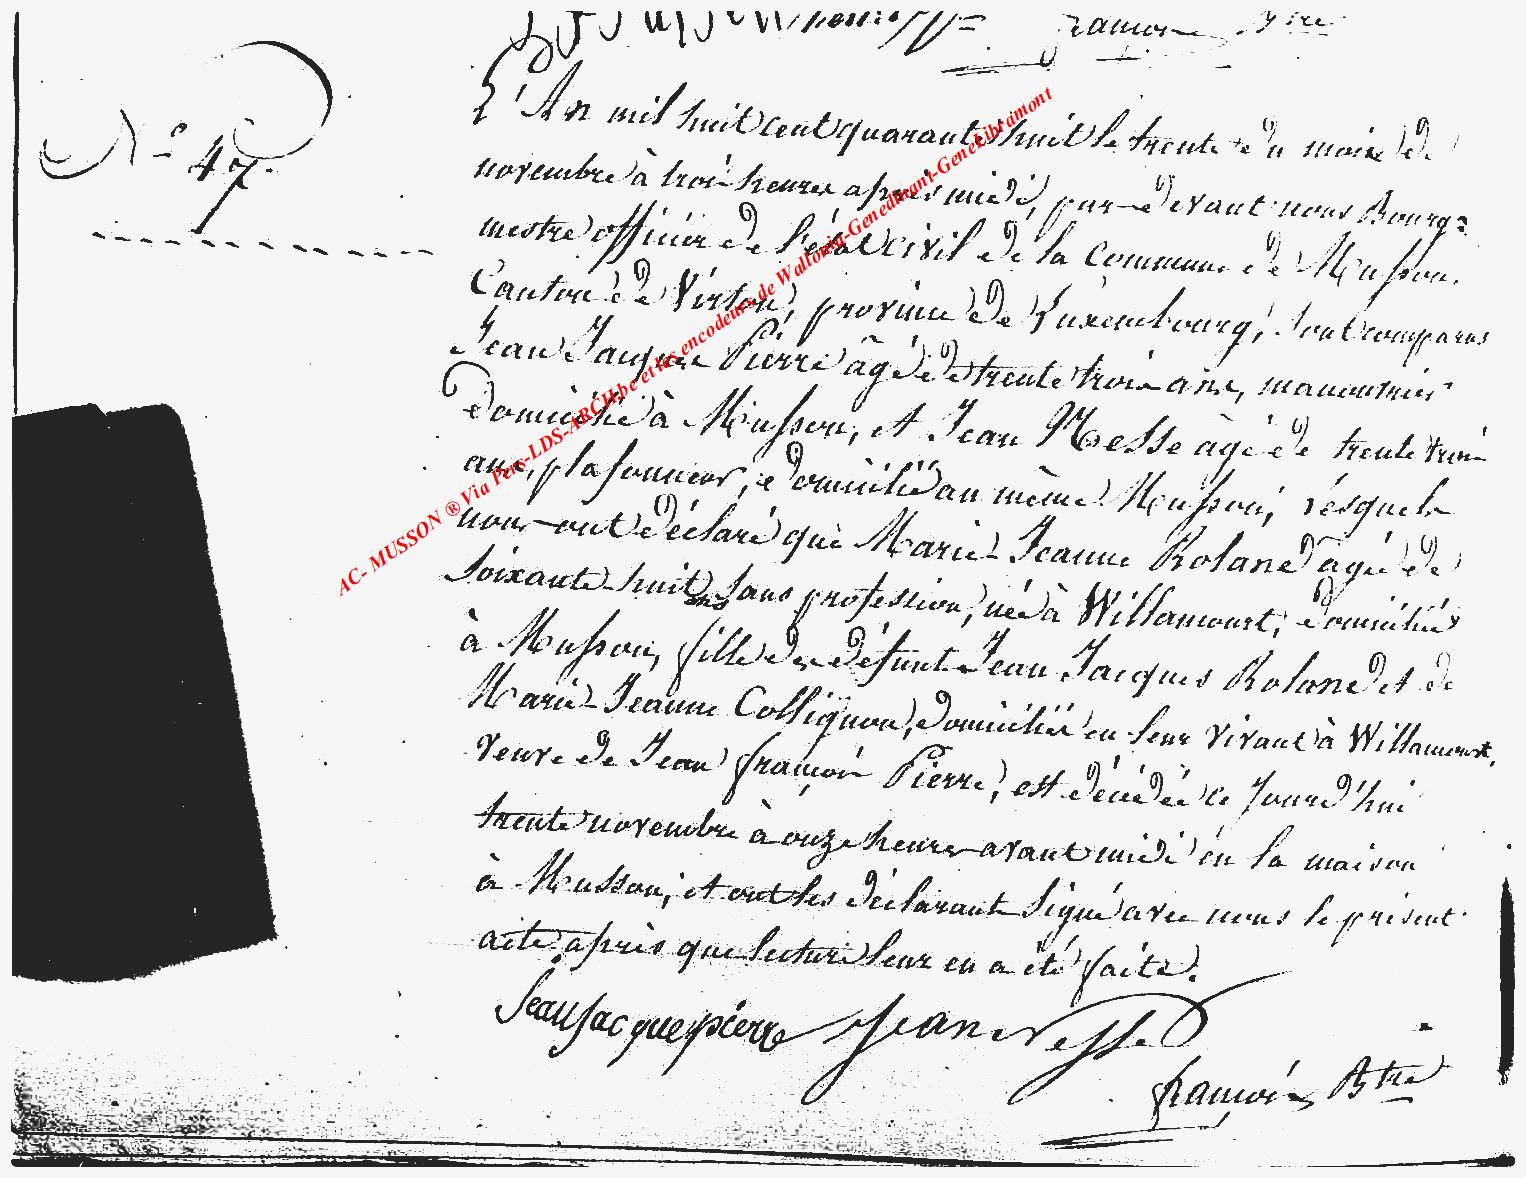 françois Btre
N° 47.
L'An mil huit cent quarante huit le trente du mois de
novembre à trois heures après midi, par-devant nous Bourg=
mestre officier de l'état civil de la commune de Musson,
Canton de Virton, province de Luxembourg, sont comparus
Jean Jacques Pierre âgé de trente trois ans, manouvrier
domicilié à Musson, et Jean Nesse âgé de trente trois
ans, plafonneur, domicilié au même Musson, lesquels
nous ont déclaré que Marie-Jeanne Roland âgée de
soixante-huit ans sans profession, née à Willancourt, domiciliée
à Musson, fille des défunts Jean Jacques Roland et de
Marie-Jeanne Collignon, domiciliés en leur vivant à Willancourt,
veuve de Jean françois Pierre, est décédée ce Jourd'hui
trente novembre à onze heures avant midi en la maison
à Musson, et ont les déclarants signé avec nous le présent
acte après que lecture leur en a été faite.
Jean Jacques pierre Jean Nesse
françois Btre
AC- MUSSON ® Via Pers-LDS-ARCH.be et les encodeurs de Wallonia-Genedinant-GeneLibramont